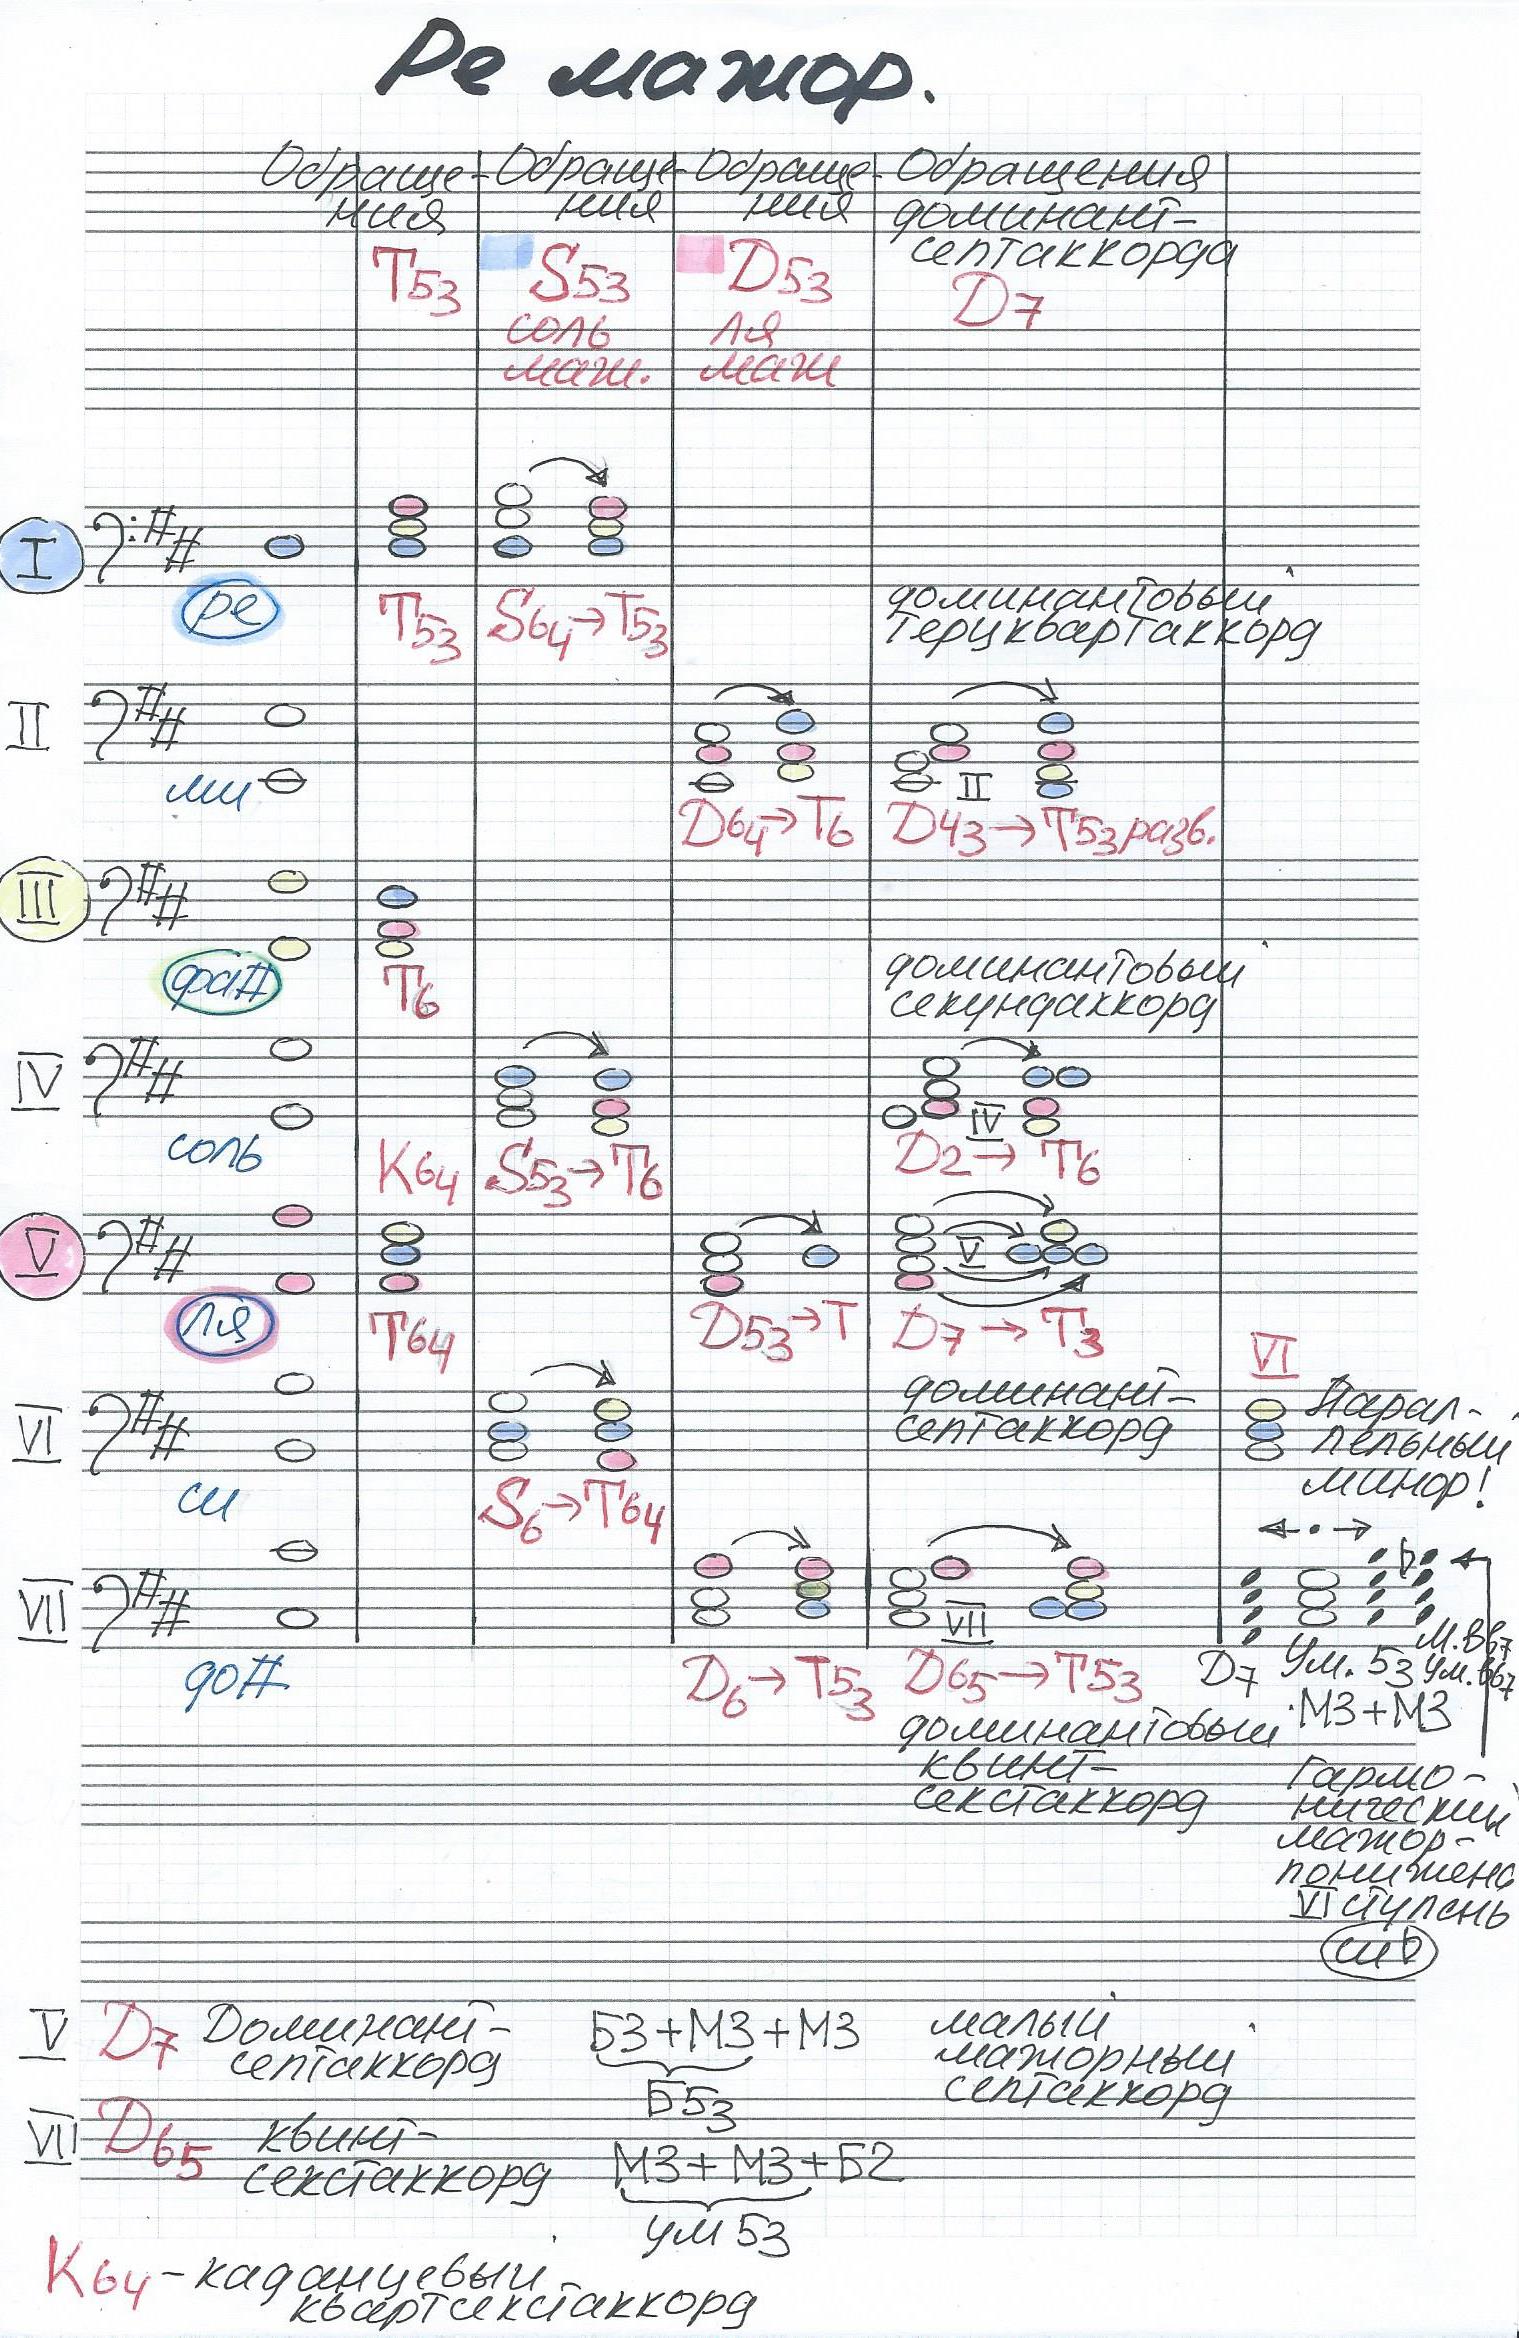 Ре мажор.
Обраще-
ния
T53
Обраще-
ния
S53
соль
маж.
Обраще-
ния
D53
ля
маж
Обращения
доминант-
септаккорда
D7
I
ре
T53
S64→T53
доминантовый
терцквартаккорд
II
ми
D64→T6
II
D43→T53 разв.
III
фа#
T6
доминантовый
секундаккорд
IV
соль
K64
S53→T6
IV
D2→ T6
V
ля
T64
D53→T
V
D7 → T3
доминант-
септаккорд
VI
си
S6→T64
VI
Парал-
лельный
минор!
VII
до#
D6→ T53
VII
D65→T53
доминантовый
квинт-
секстаккорд
D7
Ум. 53
М3+М3
м.вв7
ум.вв7
Гармо-
нический
мажор-
понижена
VI ступень
сиb
V D7 Доминант-
септаккорд
Б3+М3+М3
Б53
малый
мажорный
септаккорд
VII D65 квинт-
секстаккорд
М3+М3+Б2
ум 53
K64-каданцевый
квартсекстаккорд